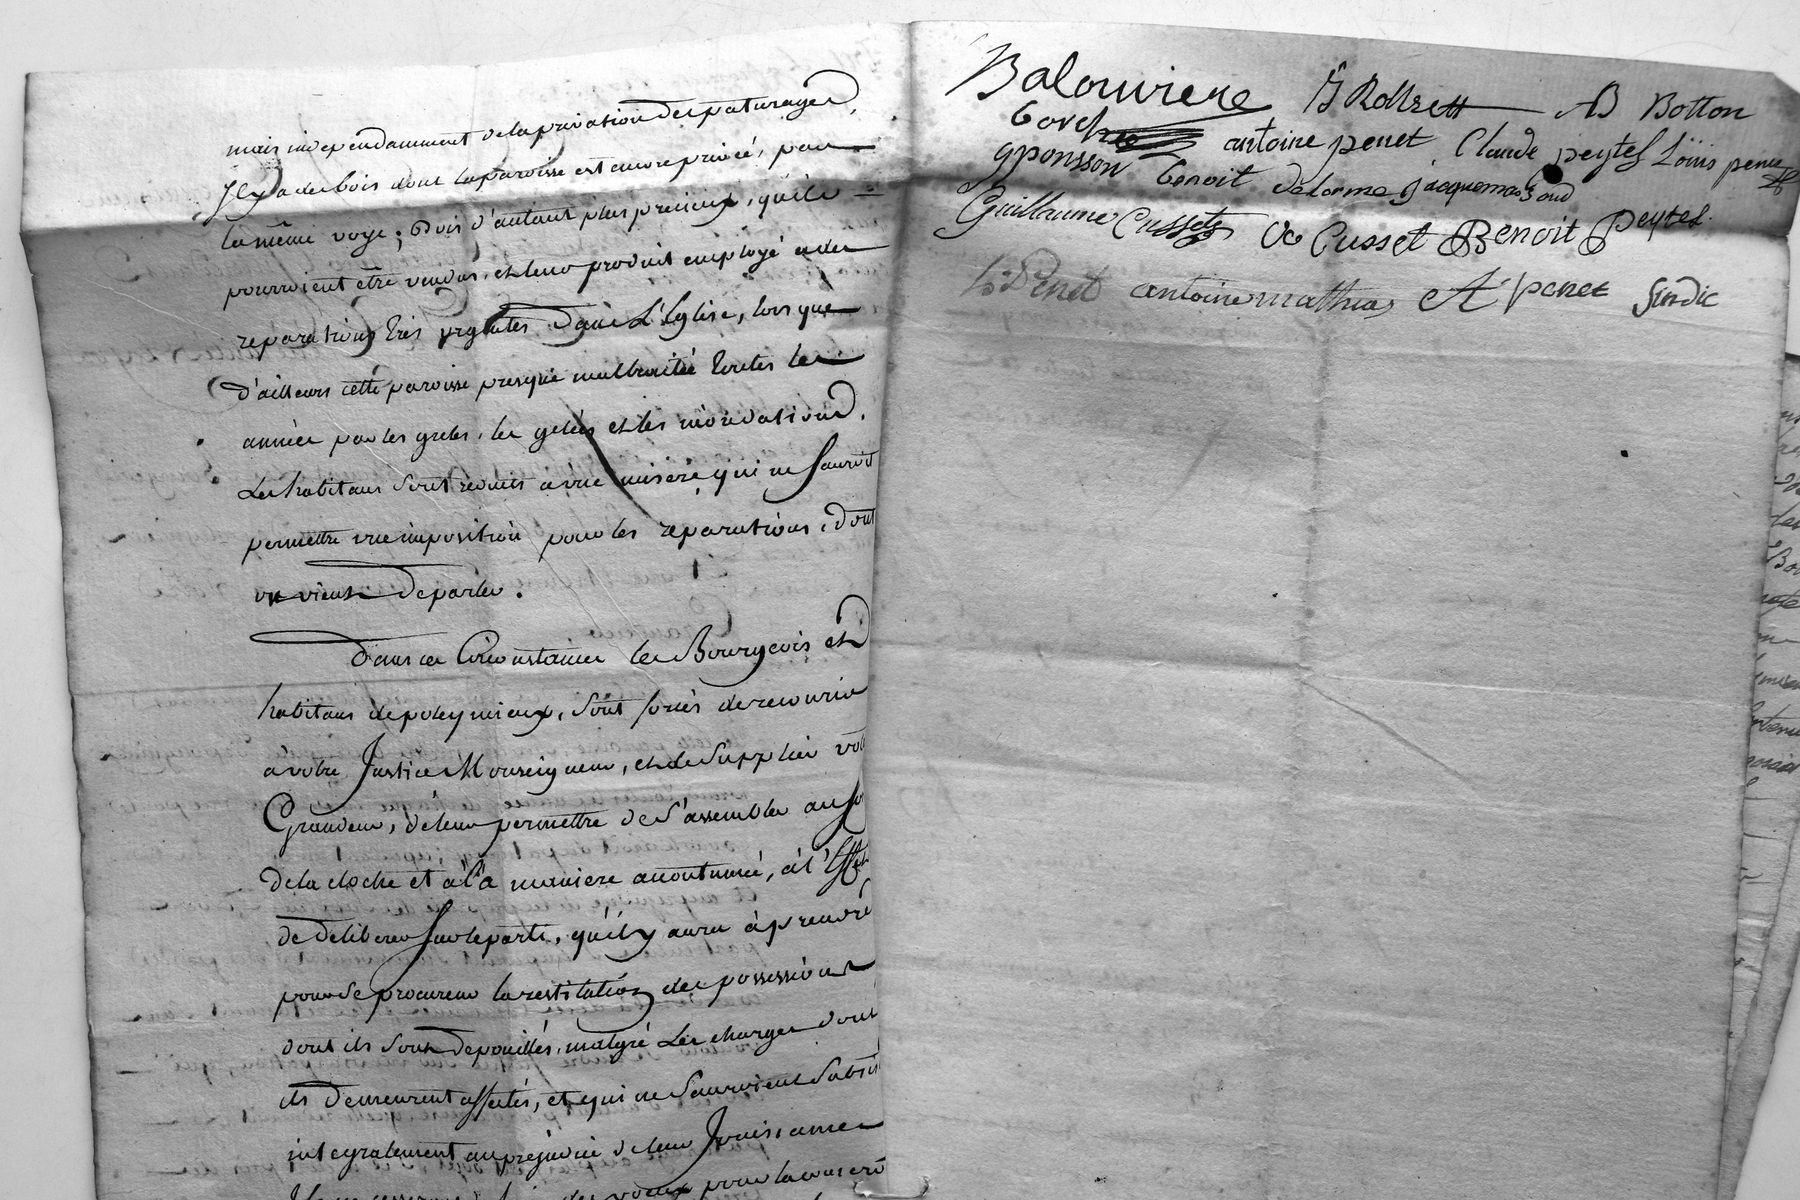 mais independamment de la privation des paturages,
Il y a des bois dont la paroisse est encore privée, par
la même voye; Bois d'autant plus precieux, qu'ils
pourroient être vendus, et leur produit employé a des
reparations très urgentes dans L'Eglise, lorsque
D'ailleurs cette paroisse presque maltraitée toutes les
années par les greles, les gelées et les inondations,
Les habitans sont reduits a une misere qui ne sauroit
permettre une imposition pour les reparations, dont
on vient de parler.
Dans ces Circonstances les Bourgeois et
habitans de poleymieux, sont forcés de recourir
à votre Justice Monseigneur, et de supplier votre
Grandeur, de leur permettre de s'assembler au son
de la cloche et à la maniere accoutumée, à l'Effet
de deliberer sur le parti, qu'il y aura à prendre
pour se procurer la restitution des possessions
dont ils sont depouillés, malgré Les charges dont
ils demeurent affectés, et qui ne sauroient subsister
integralement au prejudice de leur Jouissance
des voeux pour la
Balouvriere B Rolhett AB Botton
antoine penet Claude peytel Loüis penet
gponsson benoit delorme
Guillaume Cusset C Cusset Benoit peytel
penet antoine mathias A penet sindic